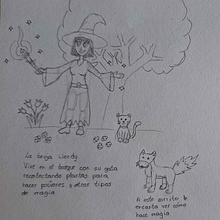 La bruja Wendy
Vive en el bosque con su gata
recolectando plantas para
hacer pociones y otros tipos
de magia
A este zorrito le
encanta ver como
hace magia